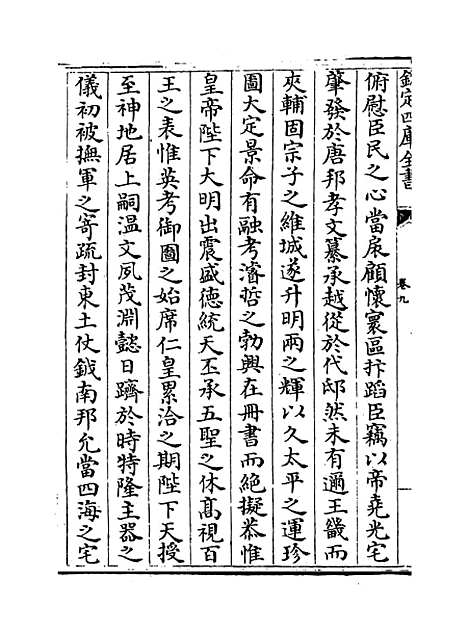 欽定四庫全書
卷九
俯慰臣民之心當扆顧懷寰區抃蹈臣竊以帝堯光宅
肇發於唐邦孝文纂承越從於代邸然未有邇王畿而
夾輔固宗子之維城遂升明兩之輝以久太平之運珍
圖大定景命有融考濬哲之勃興在冊書而絶擬恭惟
皇帝陛下大明出震盛德統天丕承五聖之休髙視百
王之表惟英考御圖之始席仁皇累洽之期陛下天授
至神地居上嗣溫文夙茂淵懿日躋於時特隆主器之
儀初被撫軍之寄疏封東土仗鉞南邦允當四海之宅